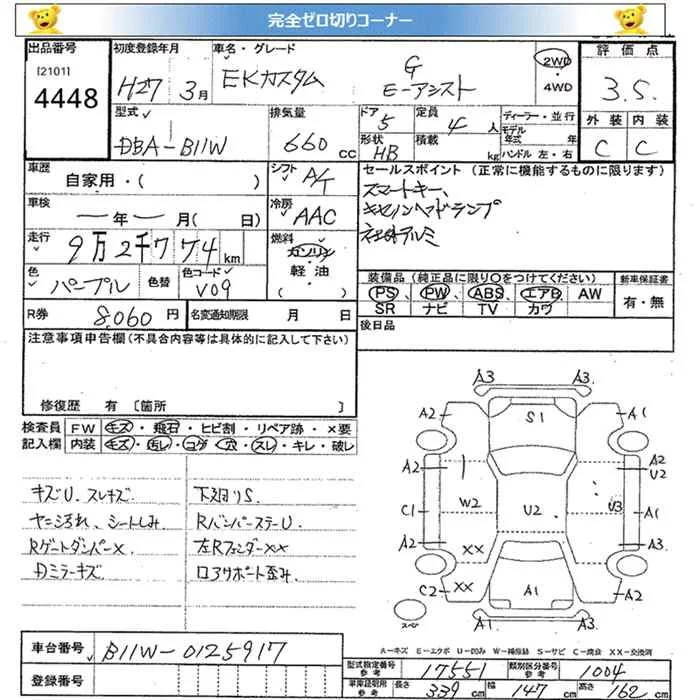 完全ゼロ切りコーナー
出品番号
[2101]
4448
初度登録年月
H27 3月
車名・グレード
EKカスタム G E-アシスト
2WD
・
4WD
評価点
3.5
外装 内装
C C
型式
DBA-B11W
排気量
660 cc
ドア
5
形状
HB
定員
4 人
積載
kg
ディーラー・並行
モデル
年式 年
ハンドル 左・右
車歴
自家用・( )
シフト
A/T
車検
ー年ー月( 日)
冷房
AAC
走行
9万2千774km
燃料
ガソリン
軽油
( )
色
パープル
色替
色コード
V09
セールスポイント(正常に機能するものに限ります)
スマートキー、
キセノンヘッドランプ
社外アルミ
装備品(純正品に限り○をつけてください)
PS PW ABS エアB AW
SR ナビ TV カワ
新車保証書
有・無
R券 8,060 円
名変通知期限 月 日
後日品
注意事項申告欄(不具合内容等は具体的に記入して下さい)
修復歴 有 〔箇所 〕
検査員
記入欄
FW キズ・飛石・ヒビ割・リペア跡・×要
内装 キズ・汚レ・コゲ・穴・スレ・キレ・破レ
キズU、スレキズ
ヤニ汚れ、シートしみ
RゲートダンパーX
Dミラーキズ
下廻りS
RバンパーステーU
左RフェンダーXX
コアサポート歪み
A3 A3
A2 S1 A1
A2 A2
U2
C1 W2 U2 U3 A1
A2 XX A3
C2 XX A1 A2
A1 A3
スペア
A-キズ E-エクボ U-凹み W-補修跡 S-サビ C-腐食 XX-交換済
車台番号 B11W-0125917
登録番号
型式指定番号
参考
17551
類別区分番号
参考
1004
車庫証明用
参考
長さ 339cm 幅 147cm 高さ 162cm